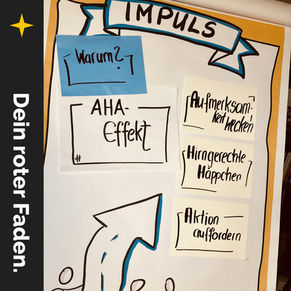 IMPULS
Warum?
AHA-
Effekt
#
Aufmerksam-
keit wecken
Hirngerechte
Häppchen
Aktion
auffordern
Dein roter Faden.